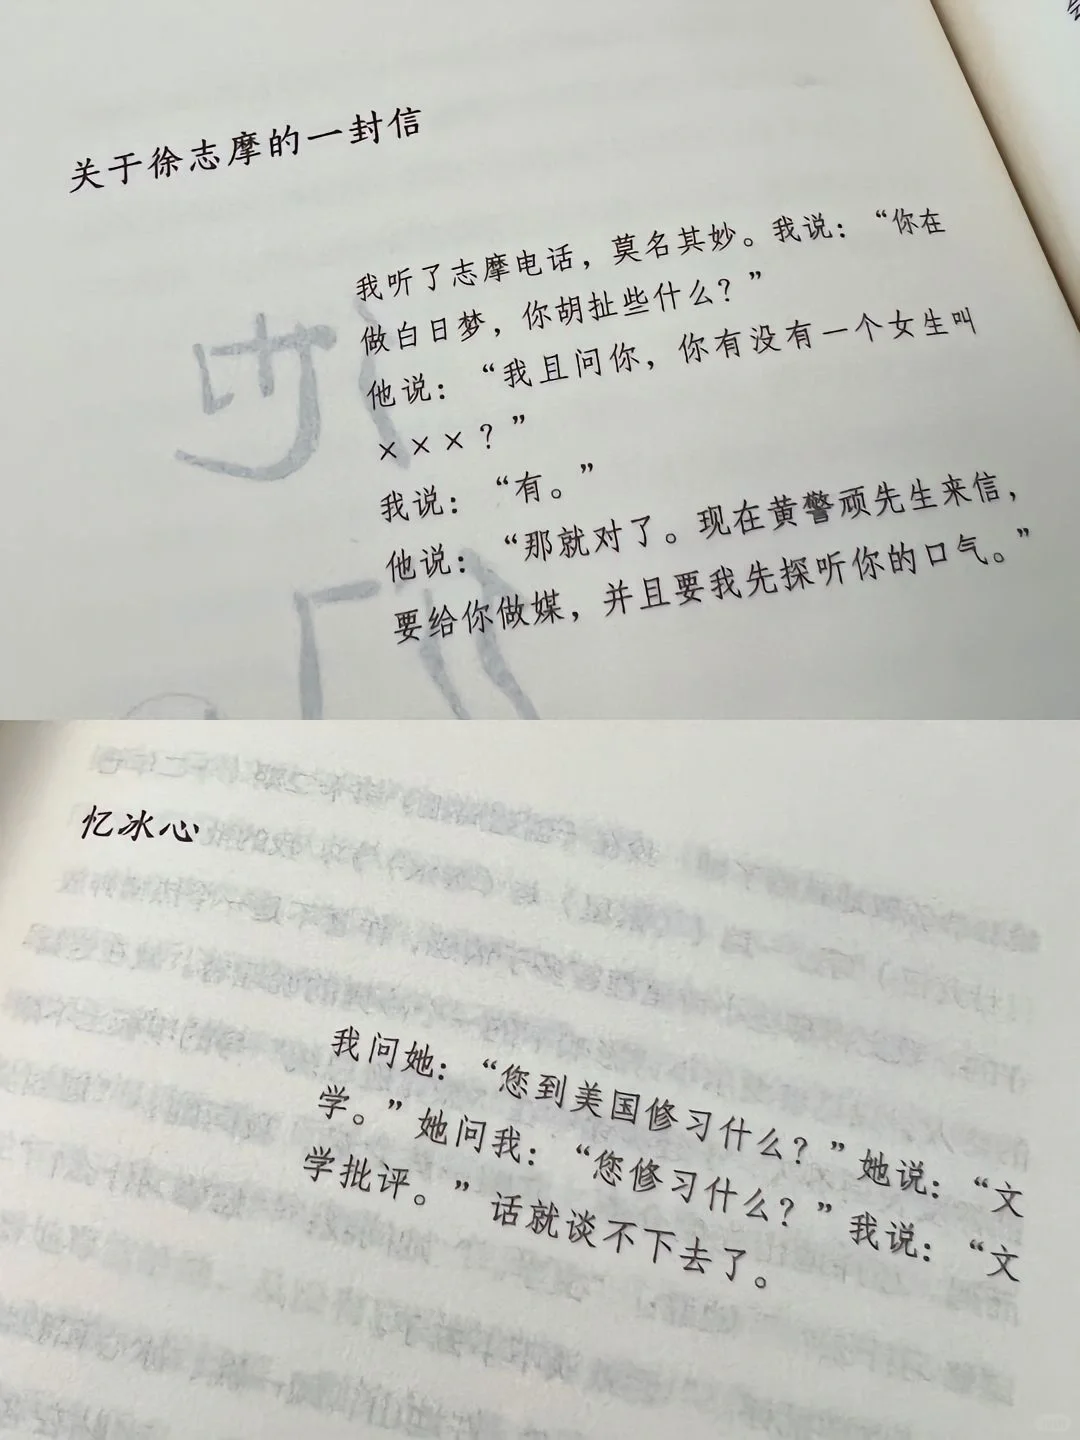 关于徐志摩的一封信
我听了志摩电话，莫名其妙。我说：“你在
做白日梦，你胡扯些什么？”
他说：“我且问你，你有没有一个女生叫
×××？”
我说：“有。”
他说：“那就对了。现在黄警顽先生来信，
要给你做媒，并且要我先探听你的口气。”
忆冰心
我问她：“您到美国修习什么？”她说：“文
学。”她问我：“您修习什么？”我说：“文
学批评。”话就谈不下去了。